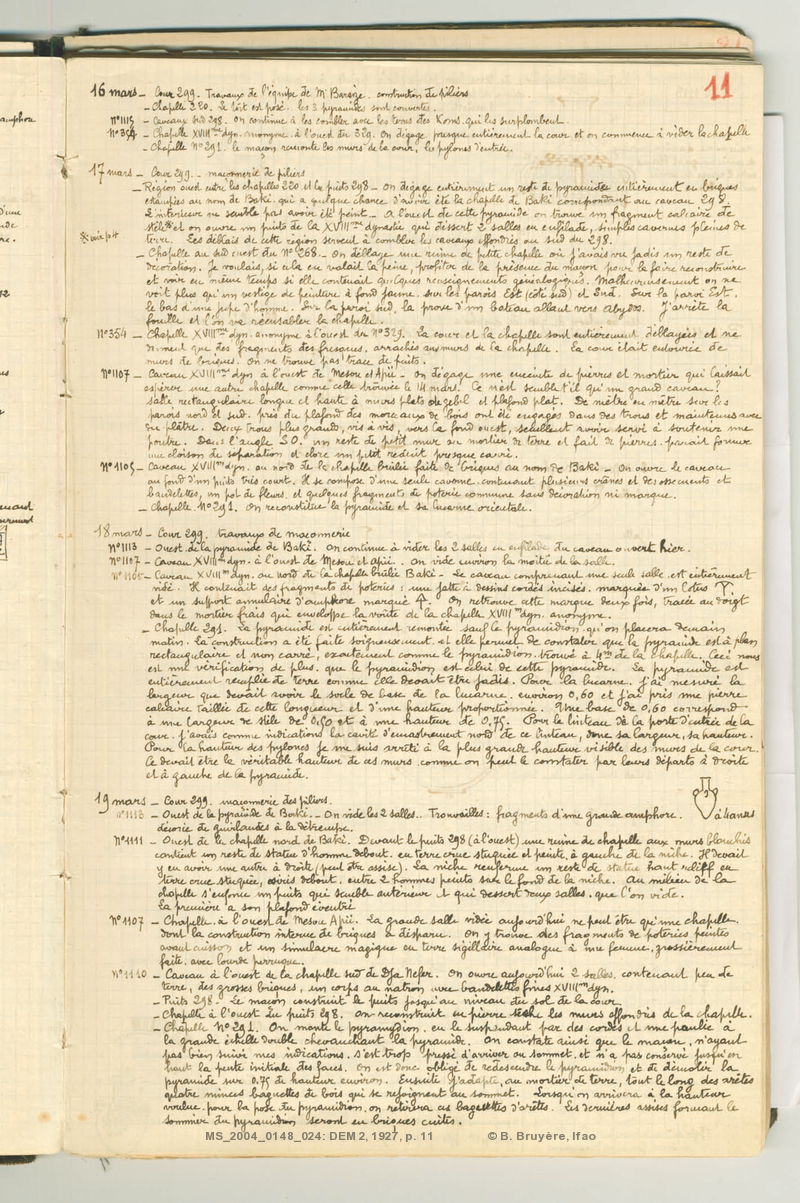 11
16 mars - Cour 299. Travaux de l'équipe de Mr Baraize. construction de piliers
- Chapelle 220. Le toit est posé. les 3 pyramides sont couvertes.
N° 1115 - Caveaux sud 298. On continue à les combler avec les terres des Koms qui les surplombent.
N° 354 - Chapelle XVIIIme dyn. anonyme à l'ouest du 329. On dégage presque entièrement la cour et on commence à vider la chapelle
- Chapelle N° 291. le maçon remonte les murs de la cour, les pylones d'entrée.
17 mars - Cour 299. - maçonnerie de piliers
- Région ouest entre les chapelles 220 et le puits 298 - On dégage entièrement un reste de pyramide entièrement en briques
estampées au nom de Baki. qui a quelque chance d'avoir été la chapelle de Baki correspondant au caveau 298.
L'intérieur ne semble pas avoir été peint. - A l'ouest de cette pyramide on trouve un fragment calcaire de
stèle et on ouvre un puits de la XVIIIme dynastie qui dessert 2 salles en enfilade, simples cavernes pleines de
terre. Les déblais de cette région servent à combler les caveaux effondrés au sud du 298.
- Chapelle au sud ouest du N° 268. On déblaye une ruine de petite chapelle où j'avais vu jadis un reste de
décoration. Je voulais, si cela en valait la peine, profiter de la présence du maçon pour le faire reconstruire
et voir en même temps si elle contenait quelques renseignements généalogiques. Malheureusement on ne
voit plus qu'un vestige de peinture à fond jaune. sur les parois Est (côté sud) et Sud. Sur la paroi Est.
le bas d'une jupe d'homme. Sur la paroi sud, la proue d'un bateau allant vers Abydos. J'arrête la
fouille et l'on va réensabler la chapelle.
N° 354 - Chapelle XVIIIme dyn. anonyme à l'ouest du N° 329. La cour et la chapelle sont entièrement déblayées et ne
donnent que des fragments des fresques, arrachés aux murs de la chapelle. La cour était entourée de
murs de longues. On ne trouve pas trace de puits.
N° 1107 - Caveau XVIIIme dyn à l'ouest de Mesou et Apii - On dégage une enceinte de pierres et mortier qui laissait
espérer une autre chapelle comme celle trouvée le 14 mars. Ce n'est semble t'il qu'un grand caveau?
salle rectangulaire longue et haute à murs plats de gebel et plafond plat. De mètre en mètre sur les
parois nord et sud. près du plafond des morceaux de bois ont été engagés dans des trous et maintenus avec
du plâtre. Deux trous plus grands, vis à vis, vers le fond ouest, semblent avoir servi à soutenir une
poutre. Dans l'angle S.O. un reste de petit mur au mortier de terre et fait de pierres. parait former
une cloison de séparation et clore un petit réduit presque carré.
N° 1105 - Caveau XVIIIme dyn. au nord de la chapelle brûlée faite de briques au nom de Baki - On ouvre le caveau
au fond d'un puits très court. Il se compose d'une seule caverne. contenant plusieurs crânes et des ossements et
bandelettes, un pot de fleurs, et quelques fragments de poterie commune sans décoration ni marque.
- Chapelle N° 291. On reconstitue la pyramide et sa lucarne orientale.
18 mars - Cour 299. travaux de maçonnerie
N° 1113 - Ouest de la pyramide de Baki. On continue à vider les 2 salles en enfilade du caveau ouvert hier.
N° 1107 - Caveau XVIIIme dyn. à l'ouest de Mesou et Apii. On vide environ la moitié de la salle.
N° 1105 - Caveau XVIIIme dyn. au nord de la chapelle brûlée Baki - Le caveau comprenant une seule salle est entièrement
vidé. Il contenait des fragments de poteries: une jatte à dessins cordés incisés, marquée d'un lotus
et un support annulaire d'amphore marqué. On retrouve cette marque deux fois, tracée au doigt
dans le mortier frais qui enveloppe la voûte de la chapelle XVIIIme dyn. anonyme.
- Chapelle 291. La pyramide est entièrement remontée sauf le pyramidion qu'on placera demain
matin. la construction a été faite soigneusement et elle permet de constater que la pyramide est à plan
rectangulaire et non carré, exactement comme le pyramidion trouvé à 4m de la chapelle. Ceci nous
est une vérification de plus. que le pyramidion est celui de cette pyramide. La pyramide est
entièrement remplie de terre comme elle devait être jadis. Pour la lucarne. j'ai mesuré la
largeur que devait avoir le socle de base de la lucarne. environ 0,60 et j'ai pris une pierre
calcaire taillée de cette longueur et d'une hauteur proportionnée. Une base de 0,60 correspond
à une largeur de stèle de 0,50 et à une hauteur de 0,75. Pour le linteau de la porte d'entrée de la
cour. j'avais comme indications la cavité d'encastrement nord de ce linteau, donc sa largeur, sa hauteur.
Pour la hauteur des pylones je me suis arrêté à la plus grande hauteur visible des murs de la cour.
Ce devait être la véritable hauteur de ces murs. comme on peut le constater par leurs départs à droite
et à gauche de la pyramide.
19 mars - Cour 299. maçonnerie des piliers.
N° 1113 - Ouest de la pyramide de Baki. - On vide les 2 salles. Trouvailles: fragments d'une grande amphore. à 4 anses
décorée de guirlandes à la détrempe.
N° 1111 - Ouest de la chapelle nord de Baki. Devant le puits 298 (à l'ouest) une ruine de chapelle aux murs blanchis
contient un reste de statue d'homme debout. en terre crue stuquée et peinte, à gauche de la niche. Il devait
y en avoir une autre à droite (peut être assise). La niche renferme un reste de statue haut relief en
terre crue stuquée, osiris debout. entre 2 hommes peints sur le fond de la niche. Au milieu de la
chapelle s'enfonce un puits qui semble antérieur et qui dessert deux salles. que l'on vide.
La première a son plafond éventré
N° 1107 - Chapelle. à l'ouest de Mesou Apii. La grande salle vidée aujourd'hui ne peut être qu'une chapelle
dont la construction interne de briques a disparu. On y trouve des fragments de poteries peintes
avant cuisson et un simulacre magique en terre sigillaire analogue à une femme, grossièrement
faite. avec lourde perruque.
N° 1110 - Caveau à l'ouest de la chapelle sud de Dja Nefer. On ouvre aujourd'hui 2 salles. contenant peu de
terre, des grosses briques, un corps au natron avec bandelettes fines XVIIIme dyn.
- Puits 298. Le maçon construit le puits jusqu'au niveau du sol de la cour.
- Chapelle à l'ouest du puits 298. On reconstruit en pierre sèche les murs effondrés de la chapelle.
- Chapelle N° 291. On monte le pyramidion. en le suspendant par des cordes et une poulie à
la grande échelle double chevauchant la pyramide. On constate ainsi que le maçon, n'ayant
pas bien suivi mes indications. s'est trop pressé d'arriver au sommet. et n'a pas conservé jusqu'en
haut la pente initiale des faces. On est donc obligé de redescendre le pyramidion et de démolir la
pyramide sur 0.75 de hauteur environ. Ensuite j'adapte, au mortier de terre, tout le long des arêtes
quatre minces baguettes de bois qui se rejoignent au sommet. Lorsqu'on arrivera à la hauteur
voulue. pour la pose du pyramidion. on retirera ces baguettes d'arêtes. Les dernières assises formant le
sommet du pyramidion seront en briques cuites.
MS_2004_0148_024: DEM 2, 1927, p. 11 © B. Bruyère, Ifao